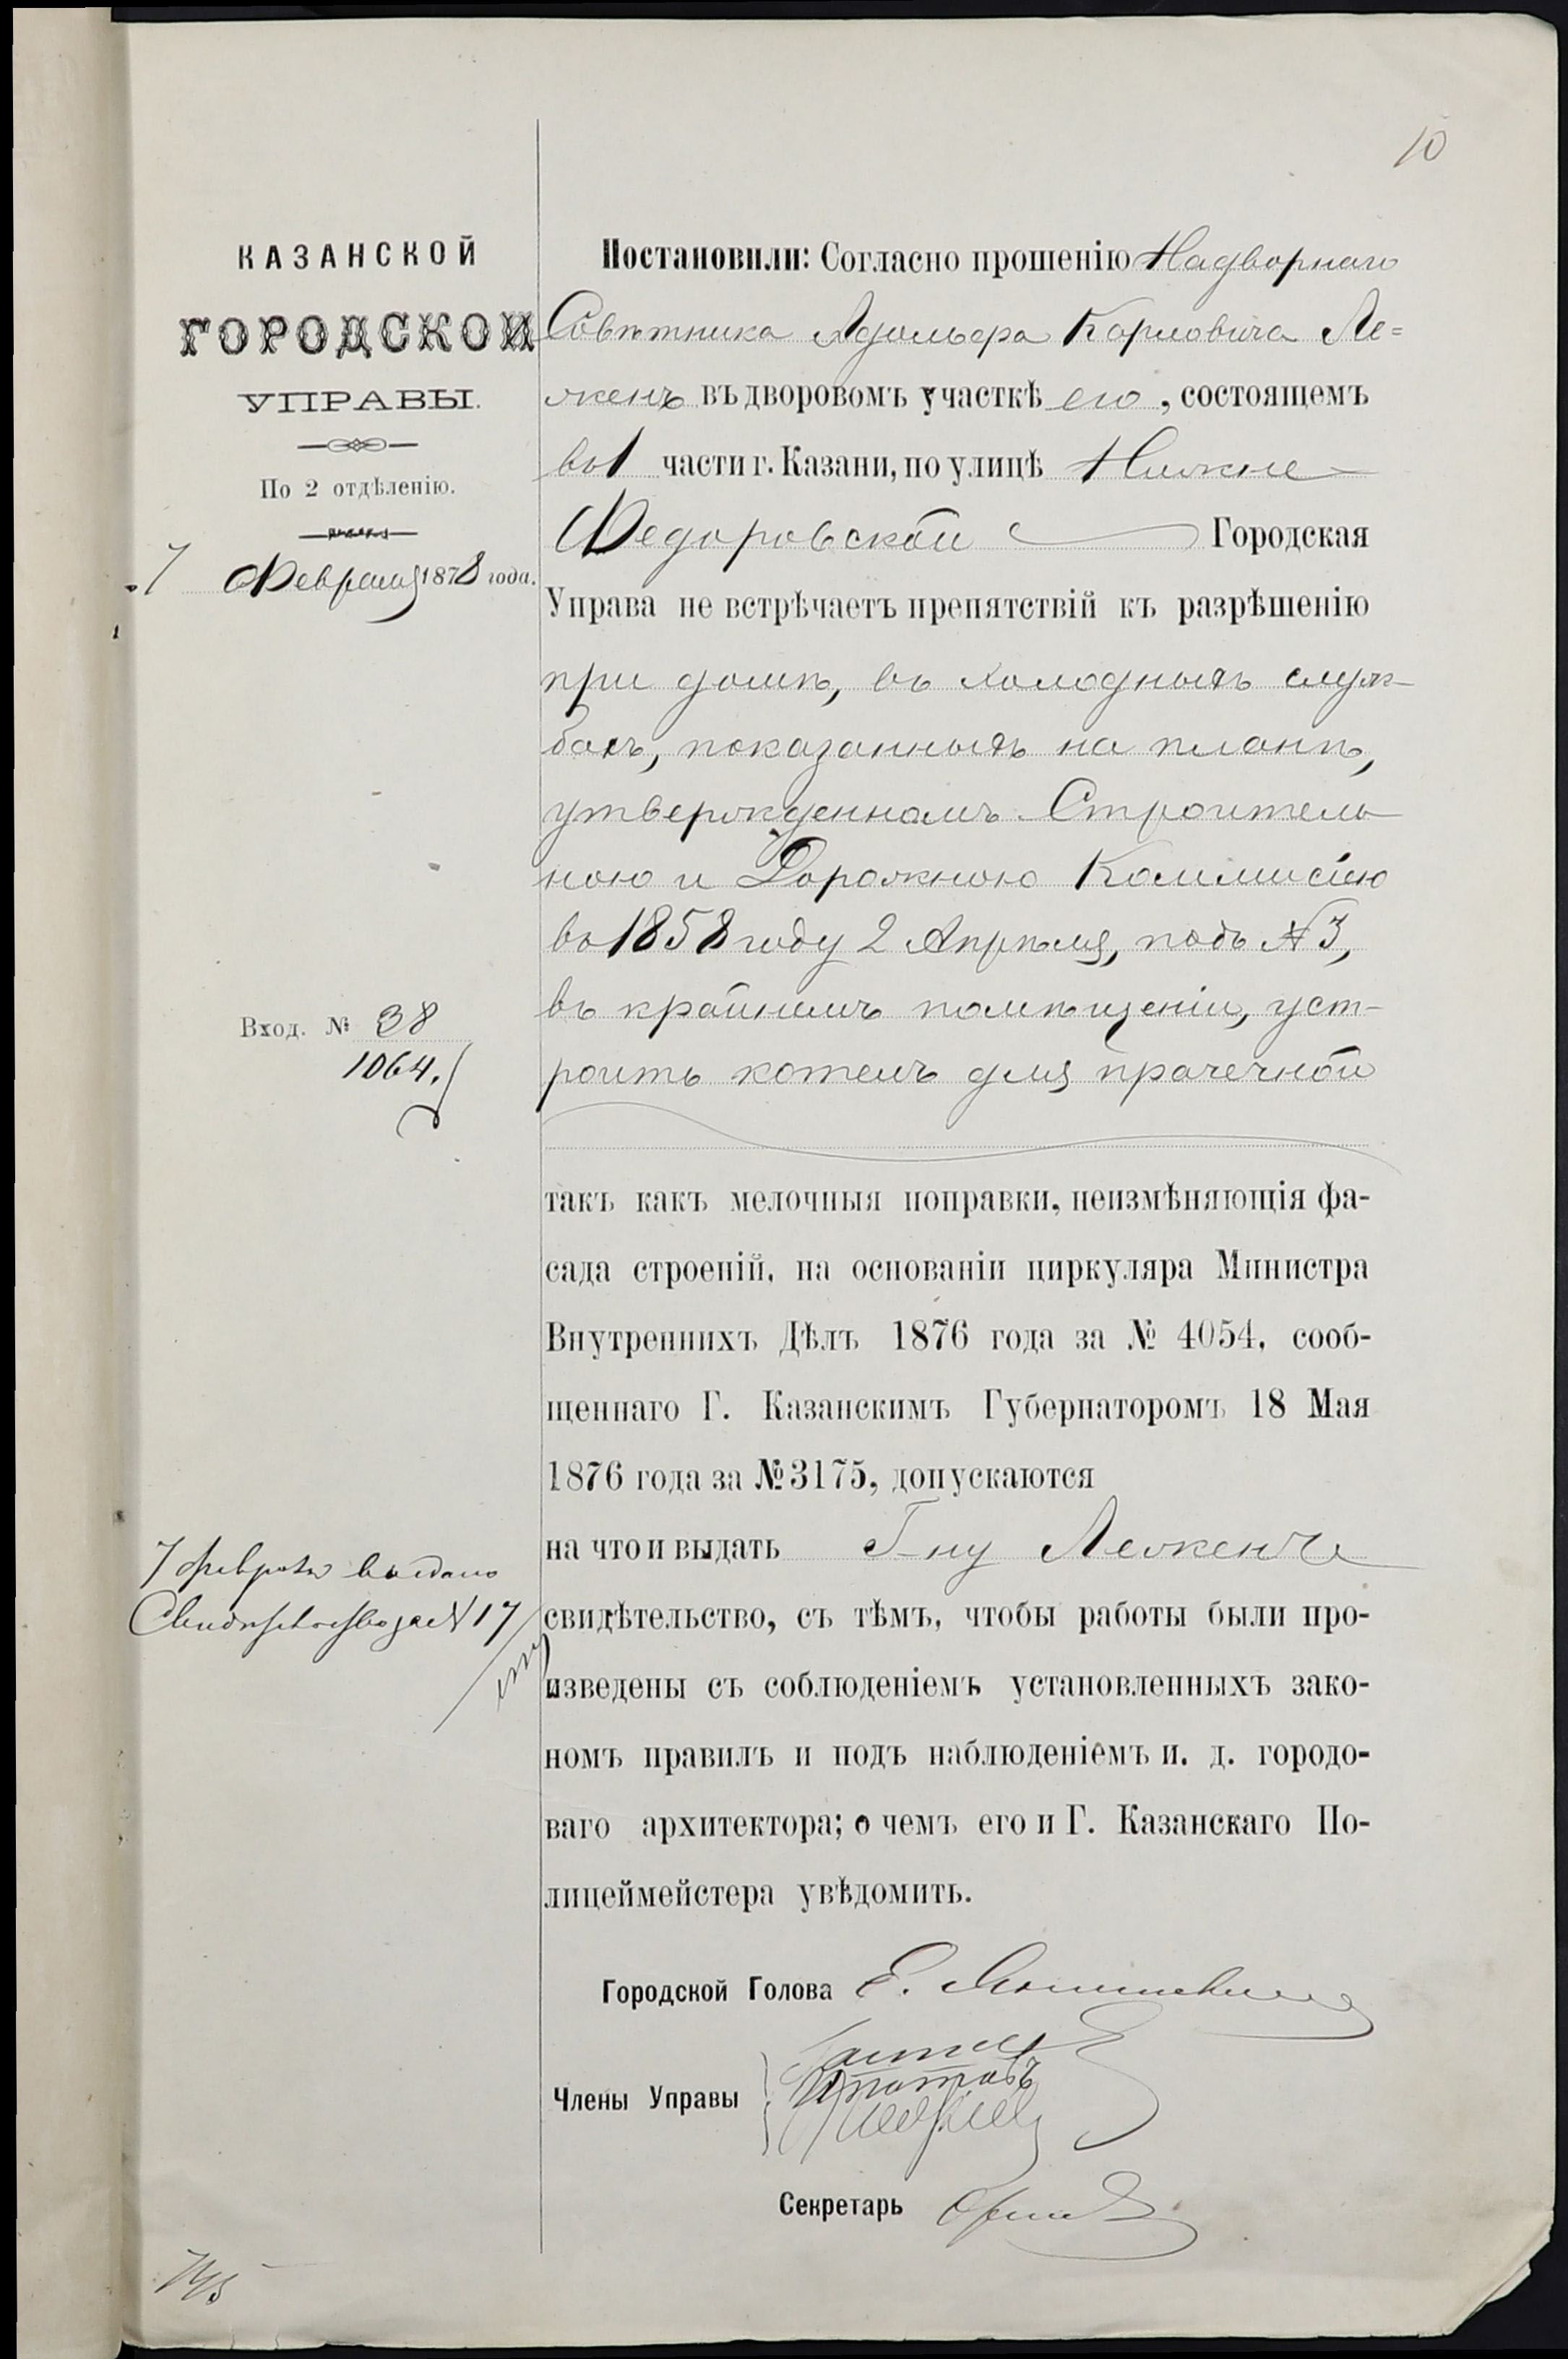 10
КАЗАНСКОЙ
ГОРОДСКОЙ
УПРАВЫ.
По 2 отдѣленію.
7 Февраля 1878 года.
Вход. № 38
1064.
7 февраля выдано
Свидѣтельство за № 17
Постановили: Согласно прошенію Надворнаго
Совѣтника Адольфа Карловича Ле=
жень въ дворовомъ участкѣ его, состоящемъ
въ 1 части г. Казани, по улицѣ Нижне-
Федоровской Городская
Управа не встрѣчаетъ препятствій къ разрѣшенію
при домѣ, въ холодныхъ служ-
бахъ, показанныхъ на планѣ,
утвержденномъ Строитель
ною и Дорожною Коммисіею
въ 1858 году 2 Апрѣля, подъ № 3,
въ крайнемъ помѣщеніи, уст-
роить котелъ для прачечной
такъ какъ мелочныя поправки, неизмѣняющія фа-
сада строеній, на основаніи циркуляра Министра
Внутреннихъ Дѣлъ 1876 года за № 4054, сооб-
щеннаго Г. Казанскимъ Губернаторомъ 18 Мая
1876 года за № 3175, допускаются
на что и выдать Г-ну
свидѣтельство, съ тѣмъ, чтобы работы были про-
изведены съ соблюденіемъ установленныхъ зако-
номъ правилъ и подъ наблюденіемъ и. д. городо-
ваго архитектора; о чемъ его и Г. Казанскаго По-
лицеймейстера увѣдомить.
Городской Голова Е.
Члены Управы
Ипатовъ
Секретарь